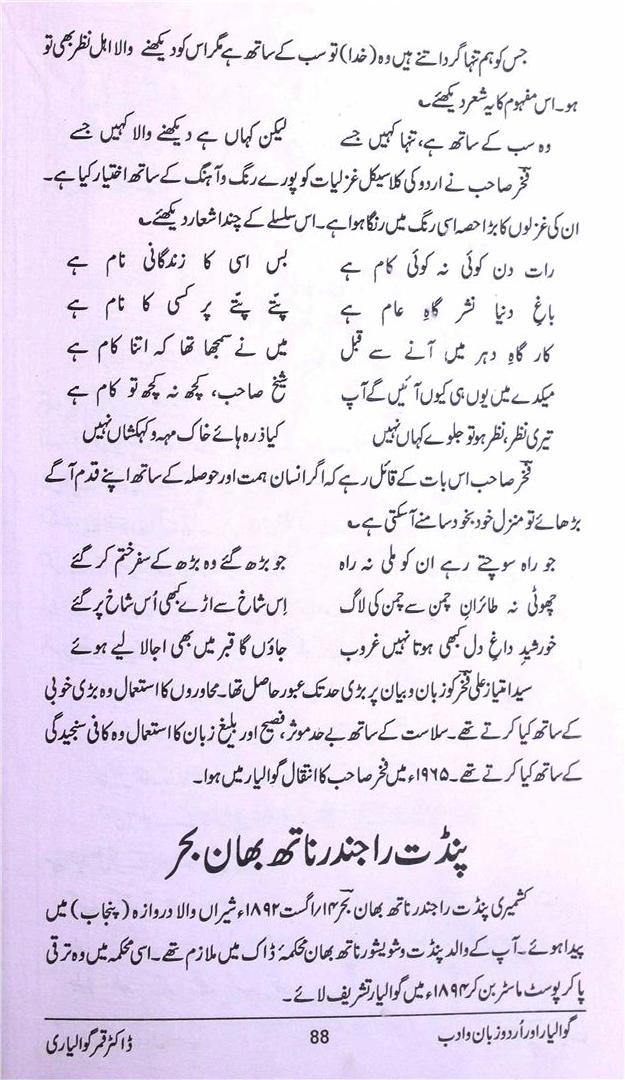 جس کو ہم تنہا گردانتے ہیں وہ (خدا) تو سب کے ساتھ ہے مگر اس کو دیکھنے والا اہل نظر بھی تو
ہو۔ اس مفہوم کا یہ شعر دیکھئے ؎
وہ سب کے ساتھ ہے، تنہا کہیں جسے لیکن کہاں ہے دیکھنے والا کہیں جسے
فخر صاحب نے اردو کی کلاسیکل غزلیات کو پورے رنگ و آہنگ کے ساتھ اختیار کیا ہے۔
ان کی غزلوں کا بڑا حصہ اسی رنگ میں رنگا ہوا ہے۔ اس سلسلے کے چند اشعار دیکھئے ؎
رات دن کوئی نہ کوئی کام ہے بس اسی کا زندگانی نام ہے
باغِ دنیا نشر گاہِ عام ہے پتّے پتّے پر کسی کا نام ہے
کار گاہِ دہر میں آنے سے قبل میں نے سمجھا تھا کہ اتنا کام ہے
میکدے میں یوں ہی کیوں آئیں گے آپ شیخ صاحب، کچھ نہ کچھ تو کام ہے
تیری نظر، نظر ہو تو جلوے کہاں نہیں کیا ذرہ ہائے خاک مہہ و کہکشاں نہیں
فخر صاحب اس بات کے قائل رہے کہ اگر انسان ہمت اور حوصلہ کے ساتھ اپنے قدم آگے
بڑھائے تو منزل خود بخود سامنے آ سکتی ہے ؎
جو راہ سوچتے رہے ان کو ملی نہ راہ جو بڑھ گئے وہ بڑھ کے سفر ختم کر گئے
چھوٹی نہ طائرانِ چمن سے چمن کی لاگ اِس شاخ سے اڑے کبھی اُس شاخ پر گئے
خورشیدِ داغِ دل کبھی ہوتا نہیں غروب جاؤں گا قبر میں بھی اجالا لیے ہوئے
سید امتیاز علی فخر کو زبان و بیان پر بڑی حد تک عبور حاصل تھا۔ محاوروں کا استعمال وہ بڑی خوبی
کے ساتھ کیا کرتے تھے۔ سلاست کے ساتھ بے حد موثر، فصیح اور بلیغ زبان کا استعمال وہ کافی سنجیدگی
کے ساتھ کیا کرتے تھے۔ ۱۹۶۵ء میں فخر صاحب کا انتقال گوالیار میں ہوا۔
پنڈت راجندر ناتھ بھان بحر
کشمیری پنڈت راجندر ناتھ بھان بحر ۱۴/اگست ۱۸۹۲ء شیراں والا دروازہ (پنجاب) میں
پیدا ہوئے۔ آپ کے والد پنڈت وشویشور ناتھ بھان محکمۂ ڈاک میں ملازم تھے۔ اسی محکمہ میں وہ ترقی
پا کر پوسٹ ماسٹر بن کر ۱۸۹۴ء میں گوالیار تشریف لائے۔
گوالیار اور اُردو زبان و ادب 88 ڈاکٹر قمر گوالیاری